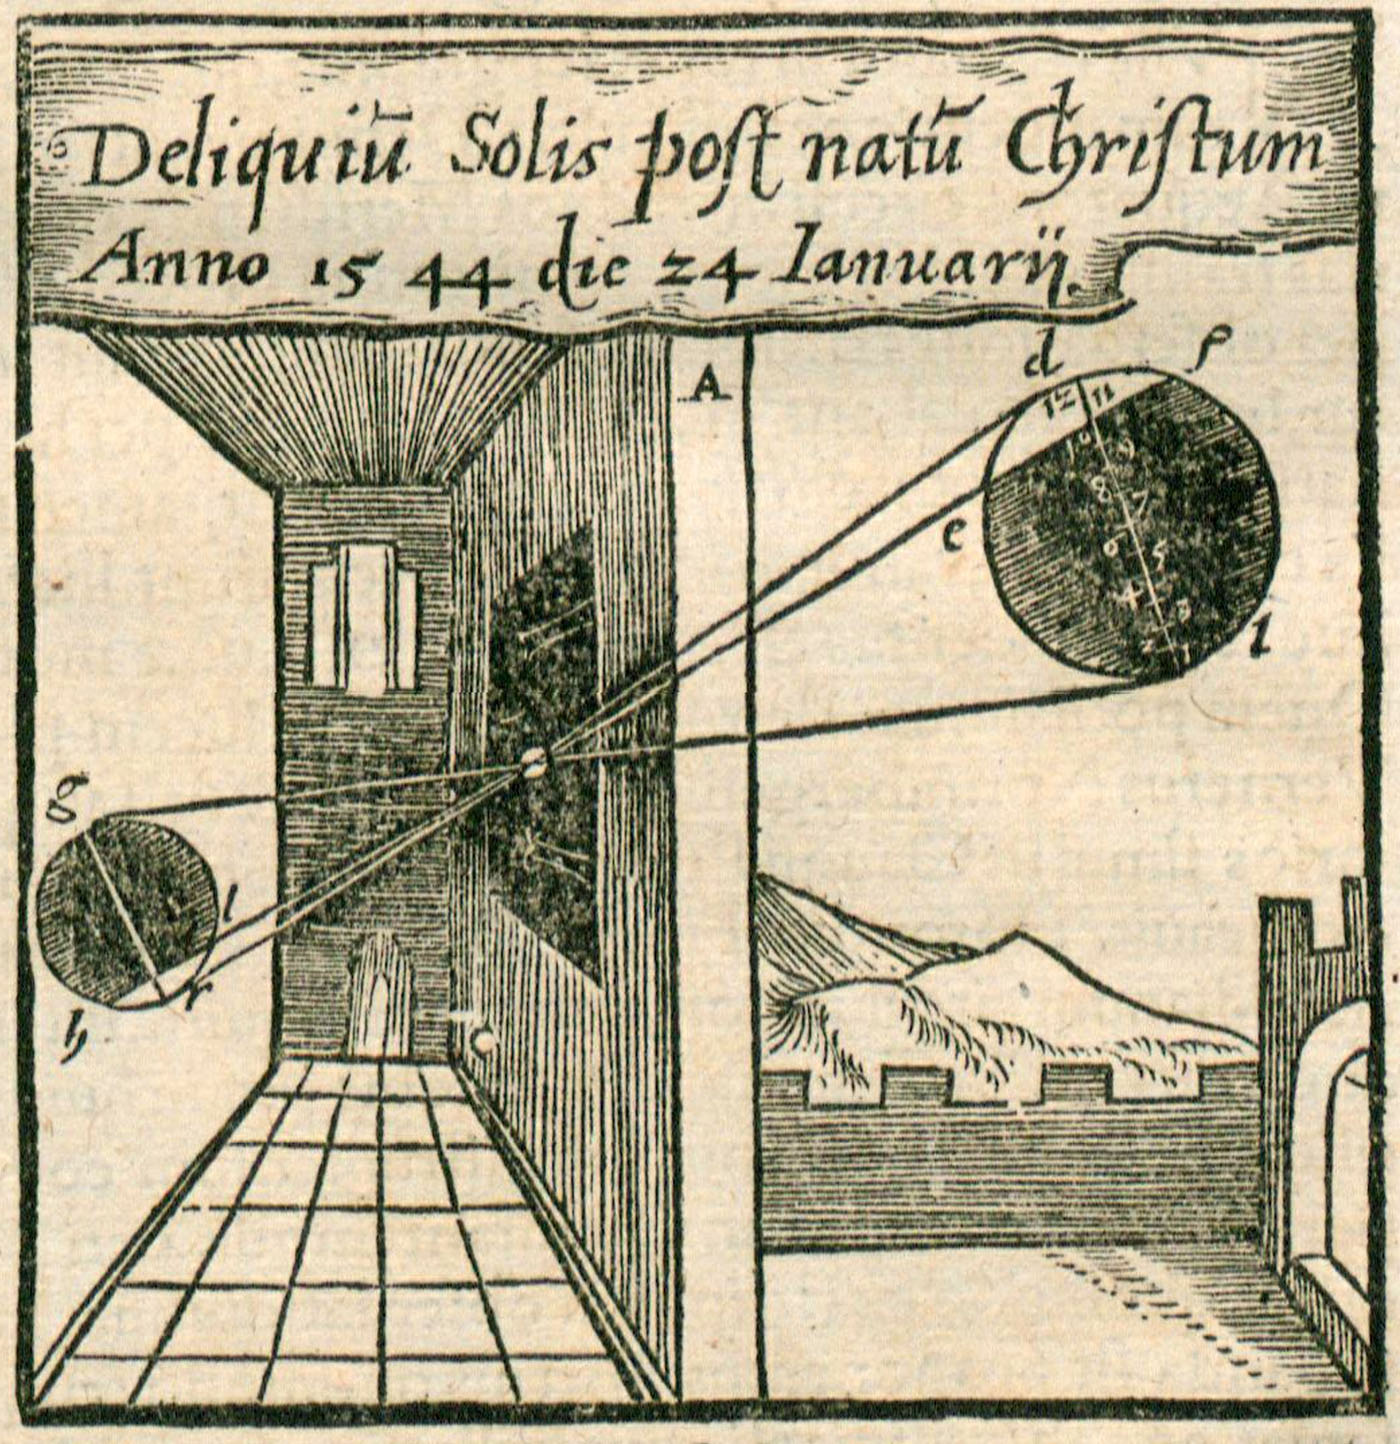 Deliquiū Solis poſt natū Chriſtum
Anno 1544 die 24 Ianuarij.
A
d
p
12 11
10 9
8 7
6 5
4 3
2 1
e
l
g
l
r
h